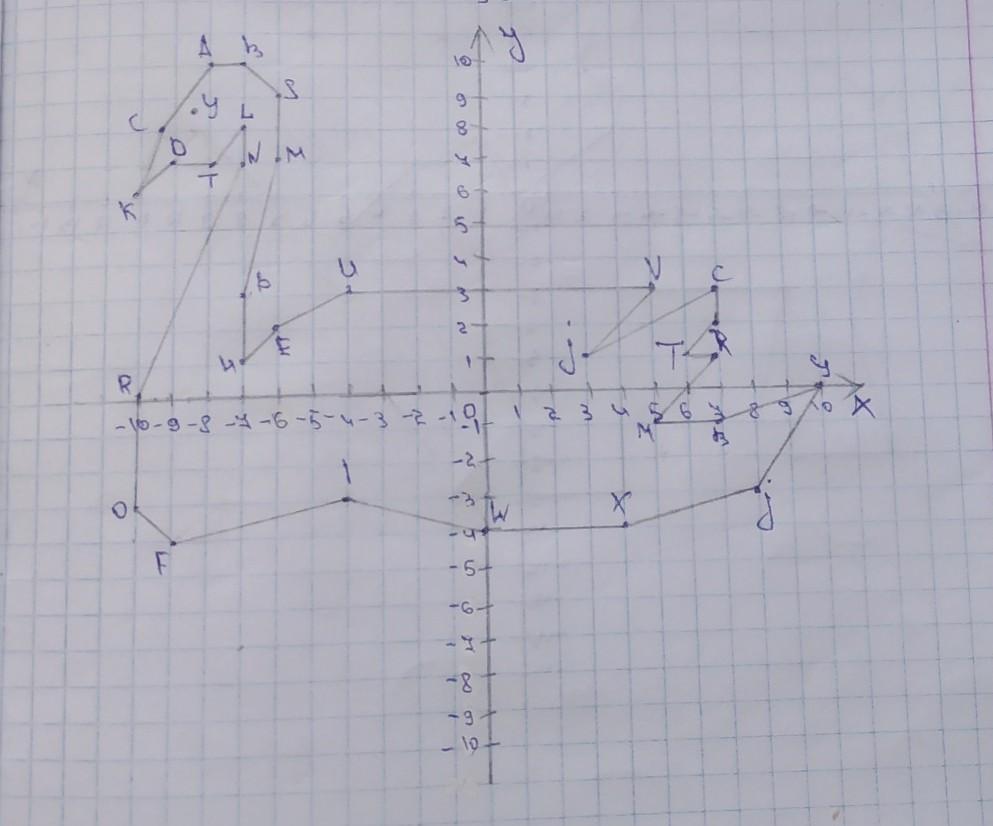 y
A B 10
S 9
y
L
C 8
D N M 7
T
K 6
5
U 4 V C
B 3
E 2 j T R
H 1
R y
-10 -9 -8 -7 -6 -5 -4 -3 -2 -1 0 1 2 3 4 5 6 7 8 9 10 X
-1 M B
-2
I -3 X j
O W
F -4
-5
-6
-7
-8
-9
-10